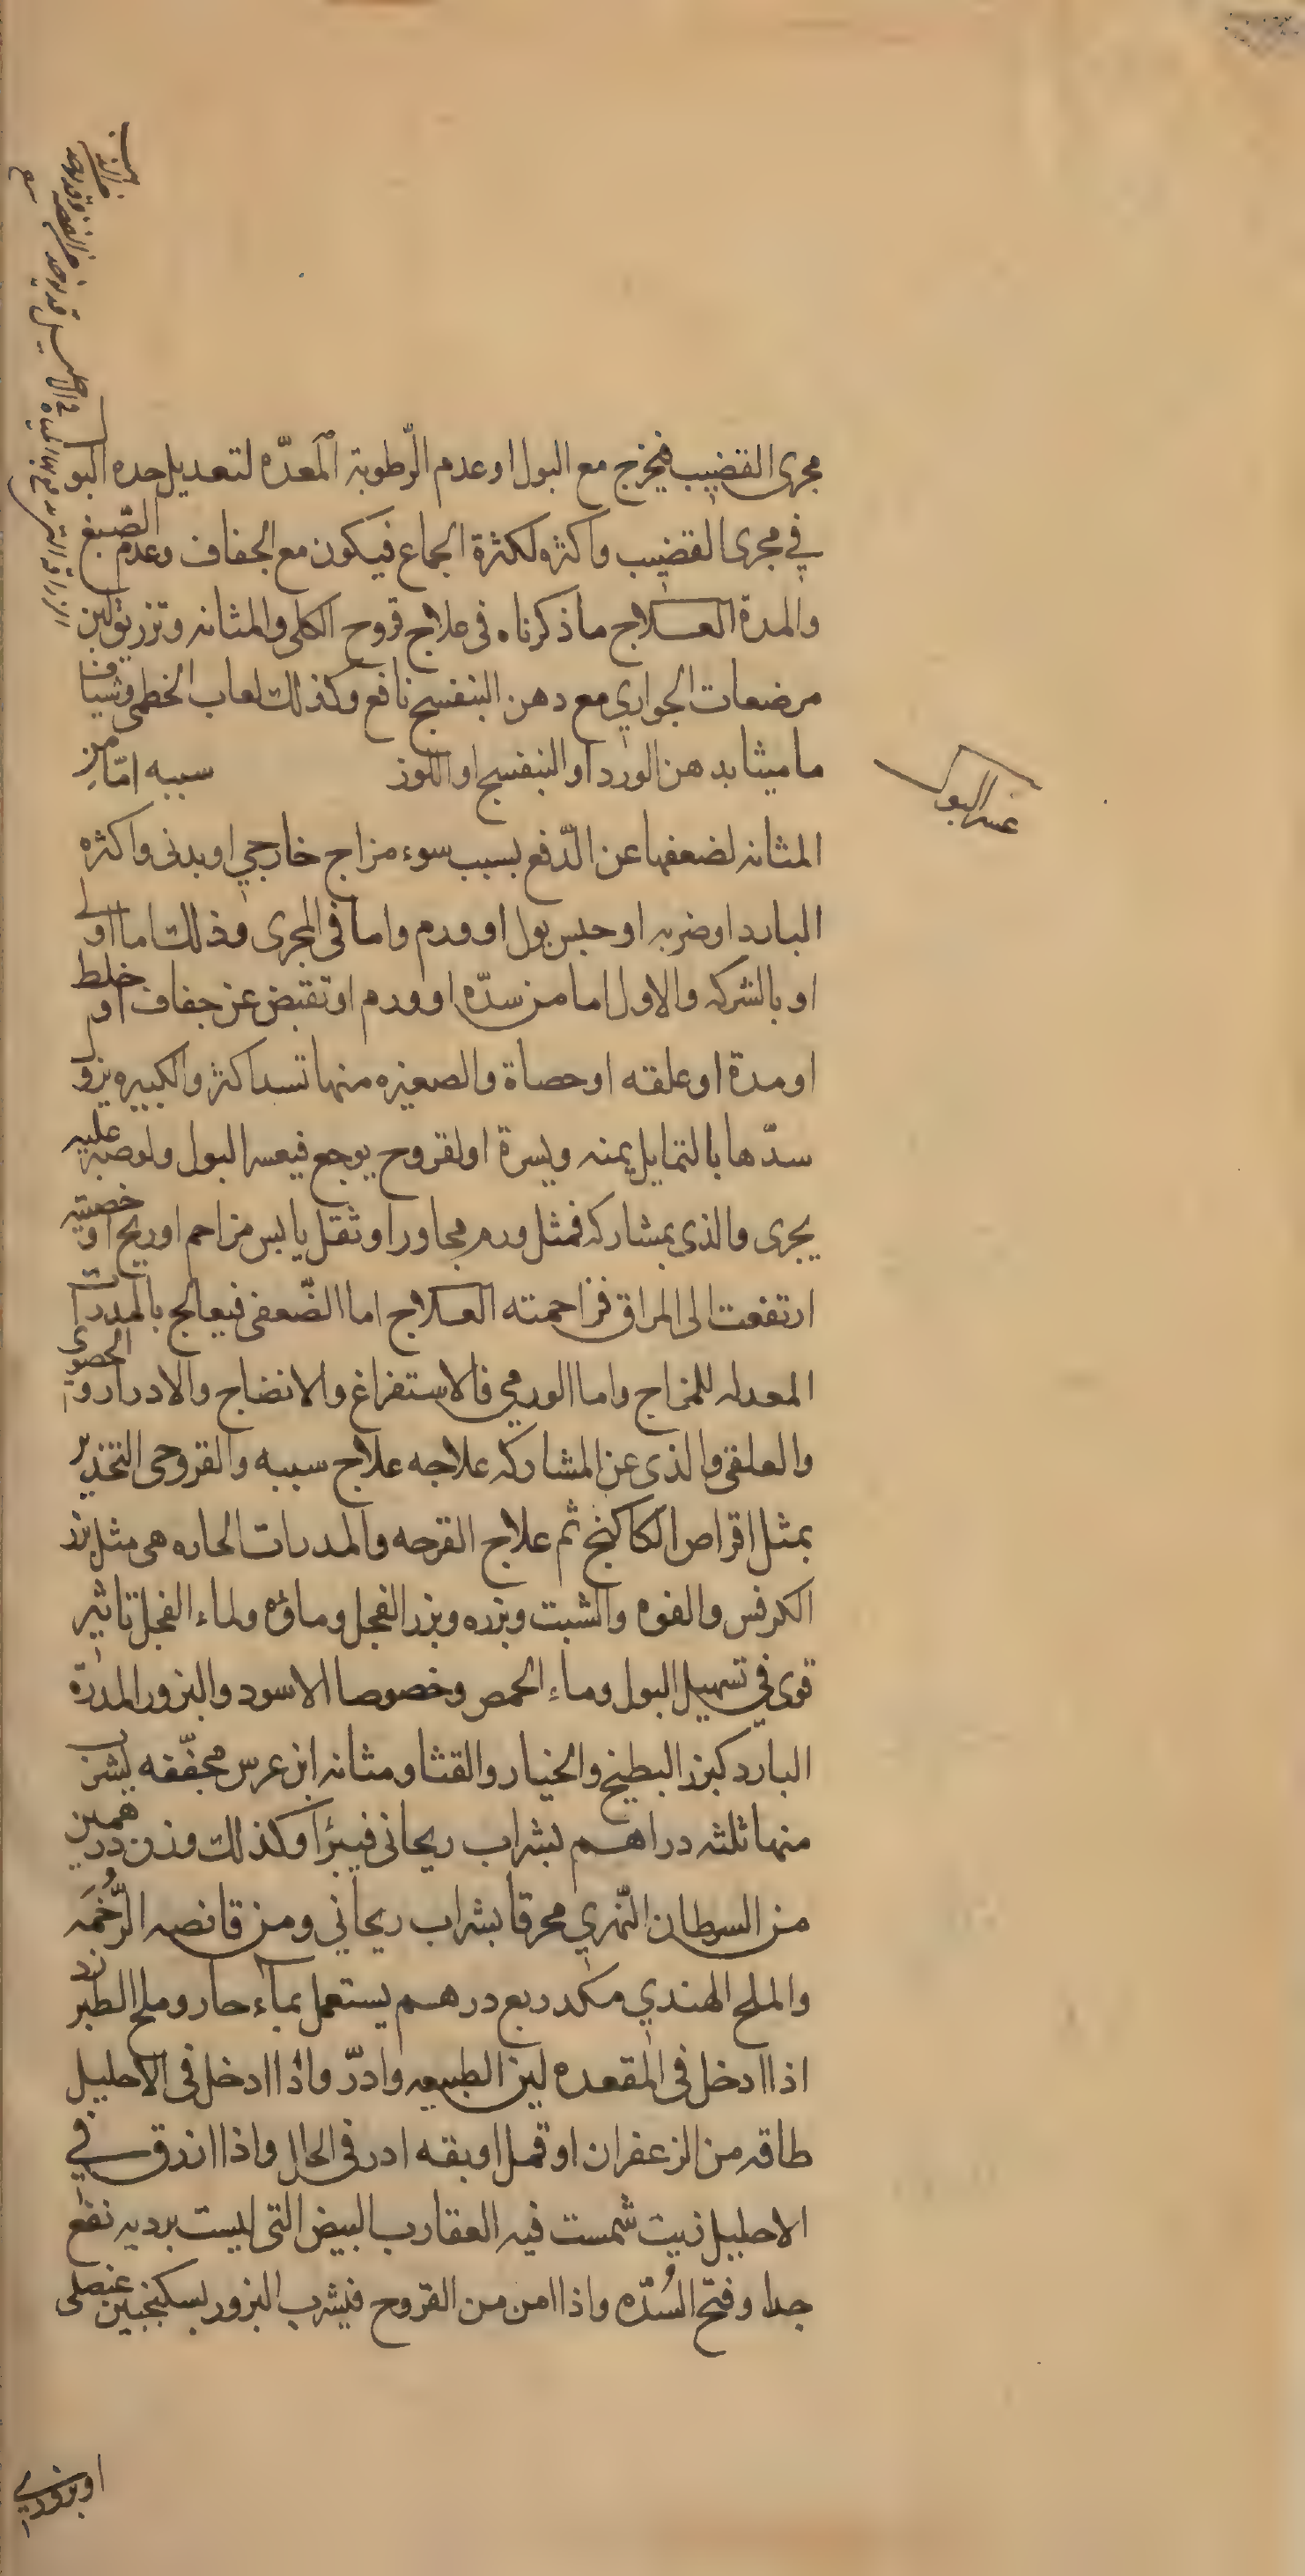 مجرى القضيب فيخرج مع البول او عدم الرّطوبة المعدّه لتعديل حده البو
في مجرى القضيب واكثره لكثرة الجماع فيكون مع الجفاف وعدم الصّبغ
والمدة العلاج ما ذكرناه في علاج قروح الكلى والمثانه وتزريق لبن
مرضعات الجواري مع دهن البنفسج نافع وكذلك لعاب الخطمى وشياف
ماميثا بدهن الورد او البنفسج او اللوز سببه امّا من
عسر البول
المثانه لضعفها عن الدّفع بسبب سوء مزاج خارجي او بدنى واكثره
البارد او ضربه او حبس بول او ورم واما في المجرى وذلك اما اولى
او بالشركه والاول اما من سدّه او ورم او تقبض عن جفاف او خلط
او مدة او علقه او حصاة والصغيره منها تسد اكثر والكبيره يزو
سدّها بالتمايل يمنه ويسرة او لقروح يوجع فيعسر البول ولو صبر عليه
يجرى والذى بمشاركه فمثل ورم مجاور او ثقل يابس مزاحم او ريح او خصيته
ارتفعت الى المراق فزاحمته العلاج اما الضّعفى فيعالج بالمدرات
المعدله للمزاج واما الورمي فالاستفراغ والانضاج والادرار و الحصوى
والعلقى والذى عن المشاركه علاجه علاج سببه والقروحى التخذير
بمثل اقراص الكاكنج ثم علاج القرحه والمدرات الحاره هى مثل بزر
الكرفس والفوه والشبت وبزره وبزر الفجل وماؤه ولماء الفجل تاثير
قوى في تسهيل البول وماء الحمص وخصوصا الاسود والبزور المدرّة
البارد كبزر البطيخ والخيار والقثا ومثانه ابن عرس مجفّفه يشرب
منها ثلثه دراهم بشراب ريحانى فيبرا وكذلك وزن درهمين
من السرطان النّهري محرقا بشراب ريحاني ومن قانصه الرَّخُمَه
والملح الهندي مكد ربع درهم يستعمل بماء حار وملح الطبرزد
اذا ادخل في المقعده لين الطبيعه وادرّ واذا ادخل في الاحليل
طاقه من الزعفران او قمل او بقه ادر في الحال واذا ازرق في
الاحليل زيت شمست فيه العقارب البيض التى ليست برديه نفع
جدا وفتح السُدّه واذا امن من القروح فيشرب البزور بسكنجبين عنصلى
او بزوري